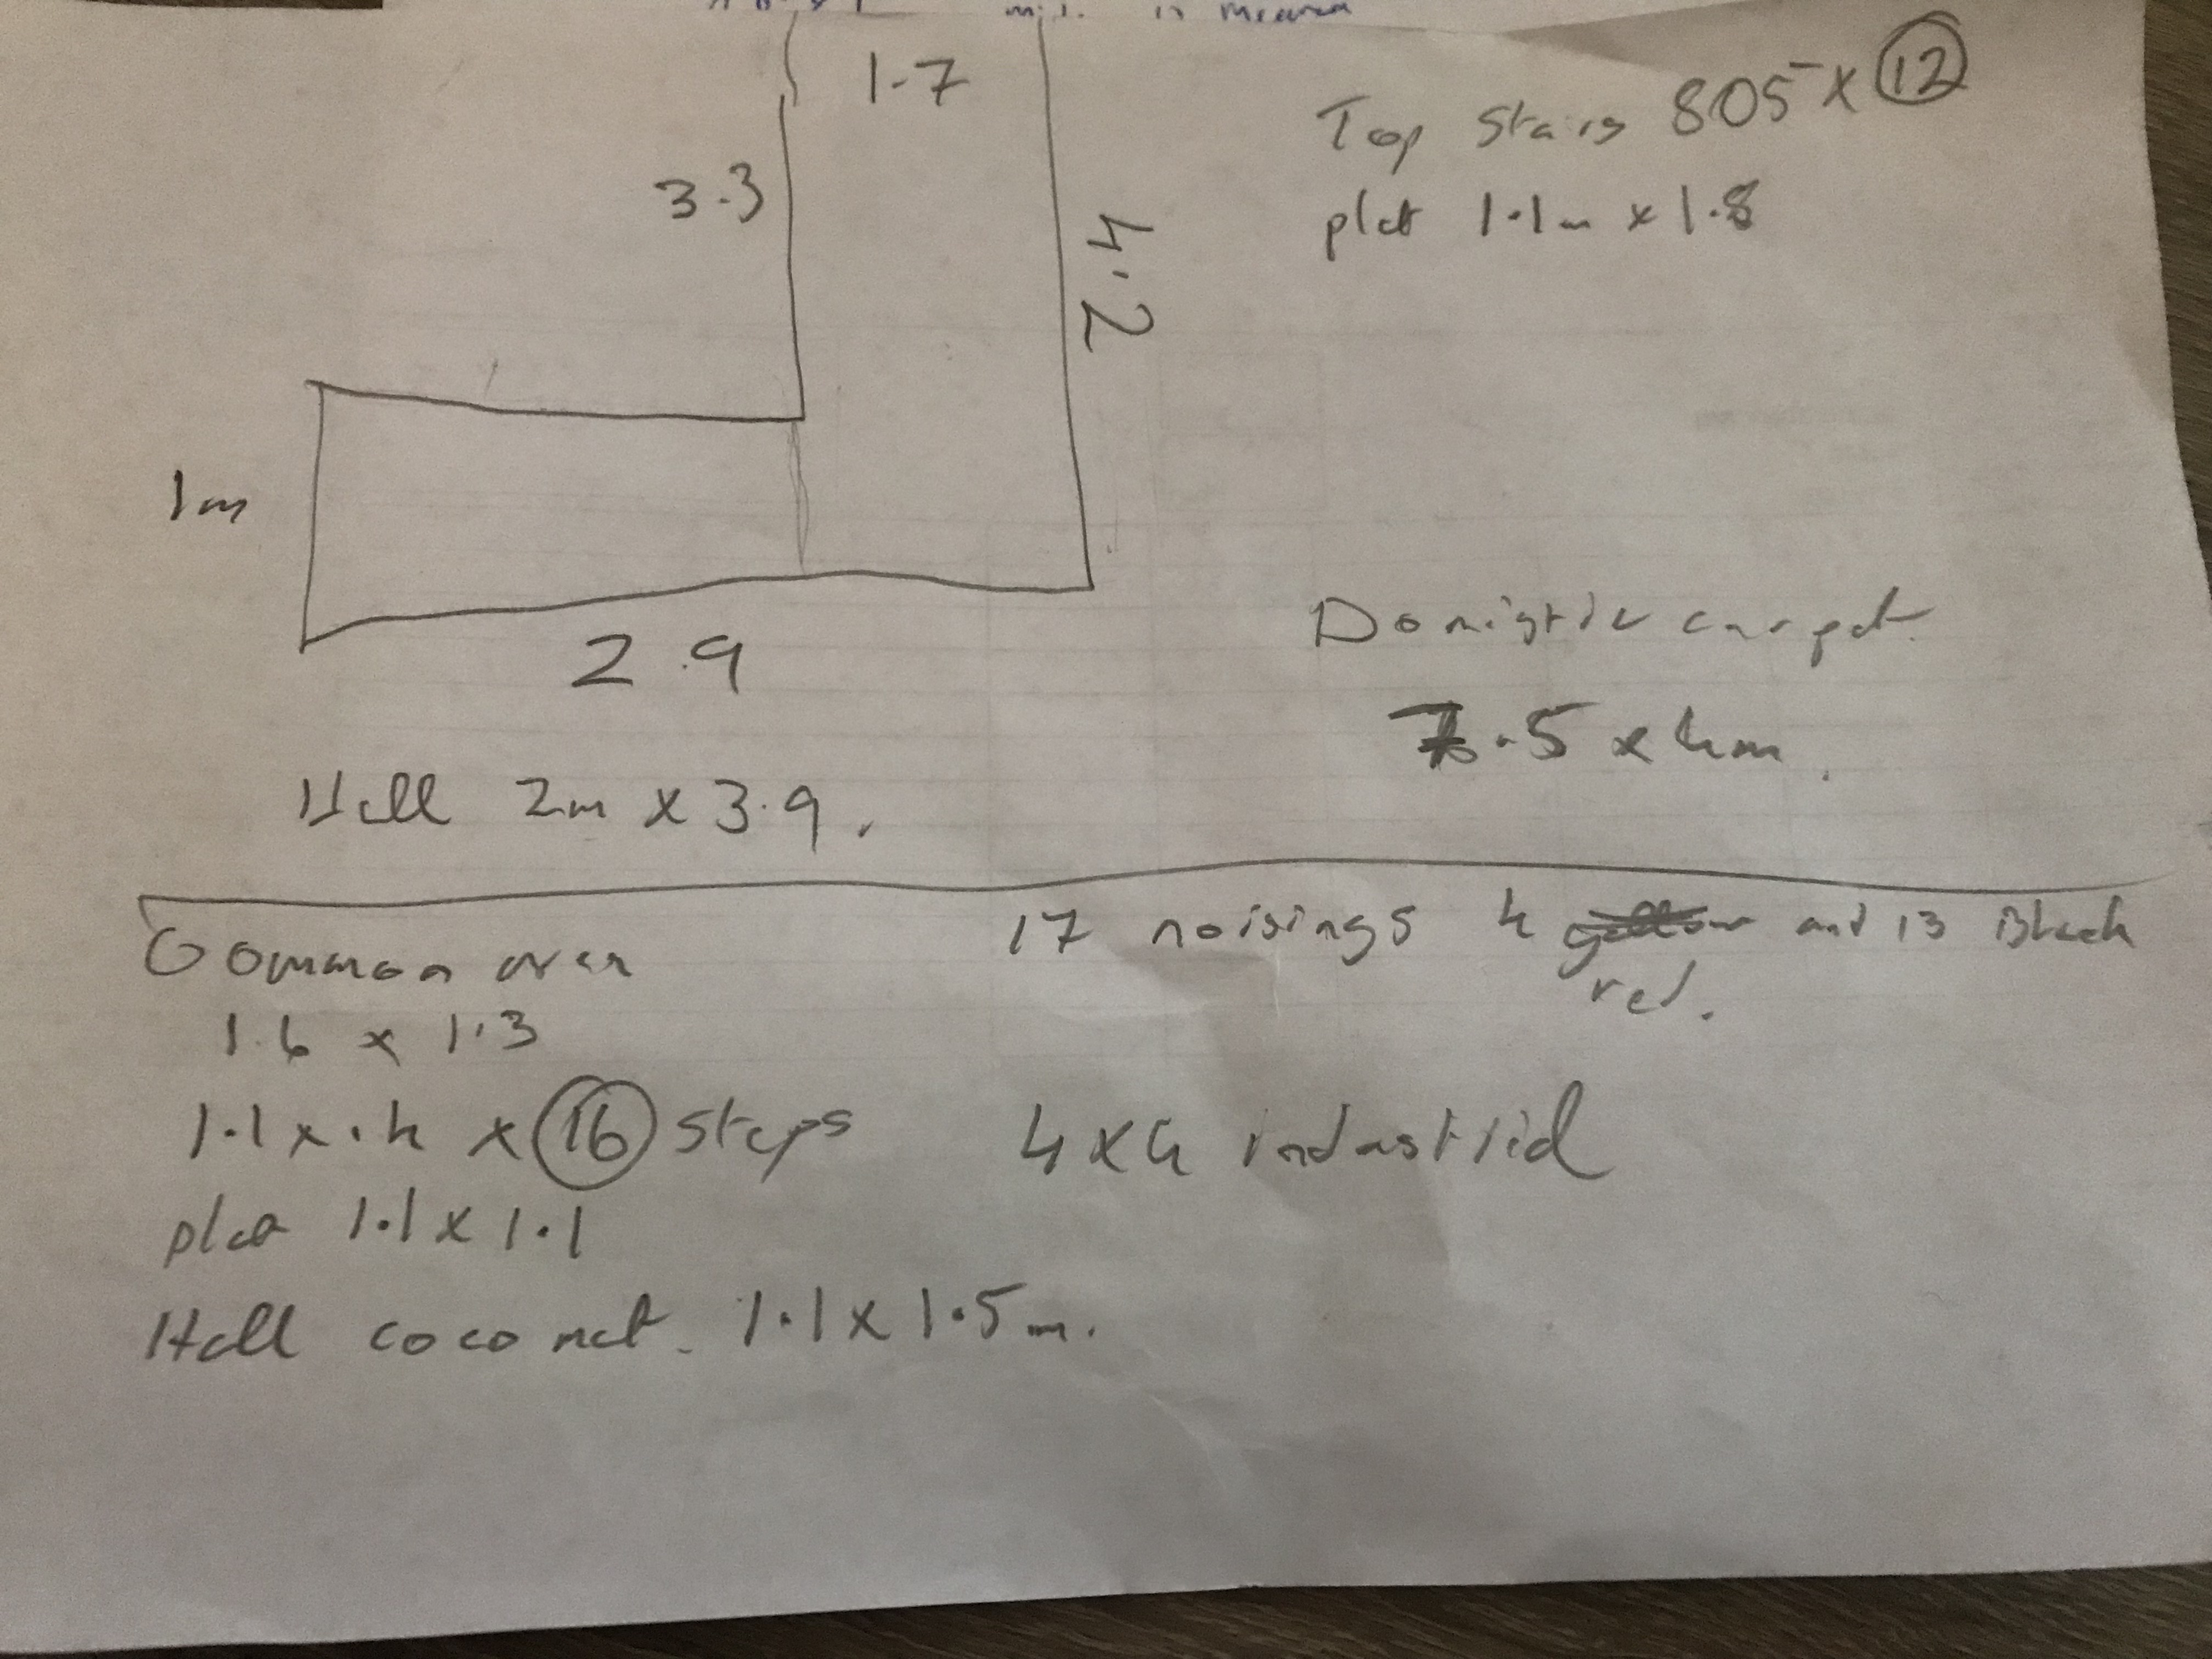 in
1.7
3.3
4.2
Top Stairs 805 x 12
plat 1.1m x 1.8
1m
2.9
Domistic carpet.
7.5 x 4m.
Hall 2m x 3.9.
Common area
17 noisings 4 yellow and 13 Black
red.
1.6 x 1.3
1.1 x .4 x 16 Steps
4 x 4 industrial
plat 1.1 x 1.1
Hall coco mat. 1.1 x 1.5m.